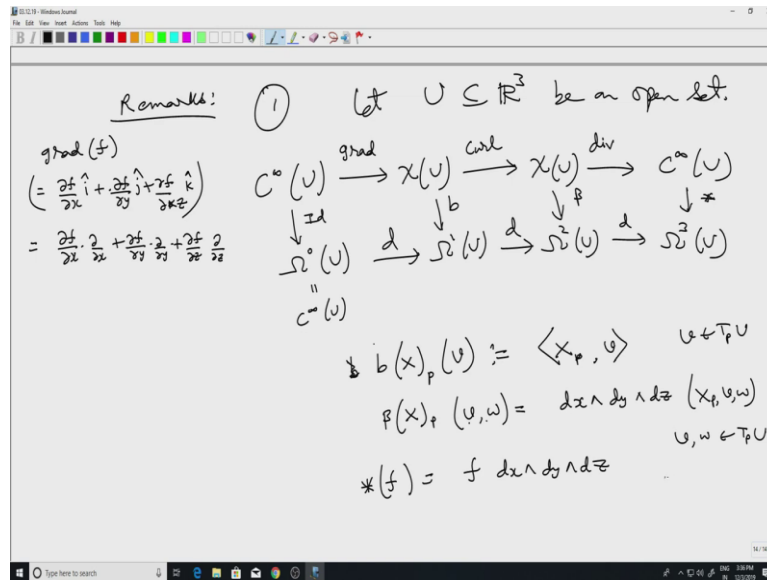 03.12.19 - Windows Journal
File Edit View Insert Actions Tools Help
B I
Remarks: ① Let U ⊆ ℝ³ be an open set.
grad (f)
(= ∂f/∂x î + ∂f/∂y ĵ + ∂f/∂z k̂)
= ∂f/∂x · ∂/∂x + ∂f/∂y · ∂/∂y + ∂f/∂z ∂/∂z
C^∞(U) —grad→ χ(U) —curl→ χ(U) —div→ C^∞(U)
↓ Id ↓ b ↓ β ↓ *
Ω⁰(U) —d→ Ω¹(U) —d→ Ω²(U) —d→ Ω³(U)
"
C^∞(U)
b(X)_p(v) := ⟨X_p, v⟩ v ∈ T_pU
β(X)_p (v, w) = dx ∧ dy ∧ dz (X_p, v, w)
v, w ∈ T_pU
*(f) = f dx ∧ dy ∧ dz
14 / 14
Type here to search
ENG 3:36 PM
IN 12/3/2019